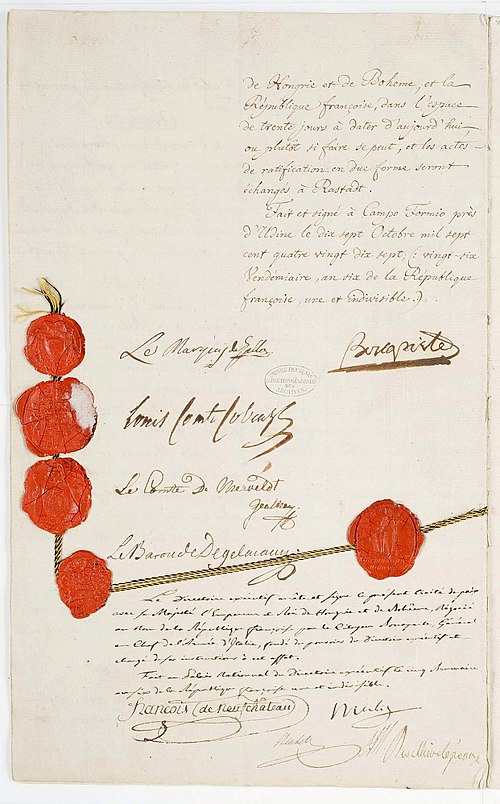 de Hongrie et de Boheme, et la
République françoise, dans l'espace
de trente jours à dater d'aujourd'hui
ou plutôt si faire se peut, et les actes
de ratification en due forme seront
échangés à Rastadt.
Fait et signé à Campo Formio près
d'Udine le dix sept Octobre mil sept
cent quatre vingt dix sept, (: vingt-six
Vendémiaire, an six de la République
françoise, une et indivisible.)
Le Marquis de Gallo
Bonaparte
Louis Comte Cobenzl
Le Comte De Merveldt
Le Baron de Degelmann
Le Directoire exécutif arrête et signe le présent traité de paix
avec sa Majesté l'Empereur et Roi de Hongrie et de Bohême, Négocié
au Nom de la République française par le Citoyen Bonaparte, Général
en Chef de l'Armée d'Italie, fondé de pouvoirs du Directoire exécutif et
chargé de ses instructions à cet effet.
Fait au Palais National du Directoire exécutif le cinq Brumaire
an six de la République française une et indivisible.
François (de Neufchâteau)
Merlin